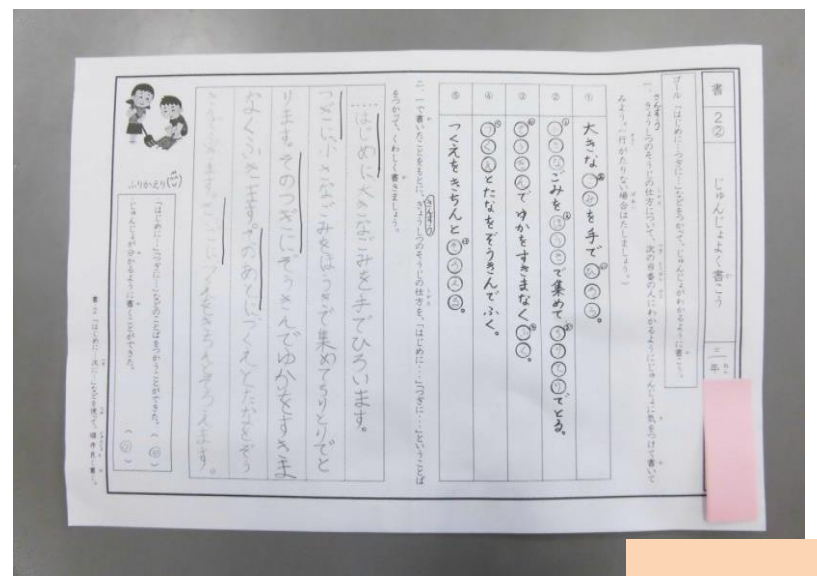 書
2②
じゅんじょよく書こう
三年
ゴール「はじめに…つぎに…」などをつかって、じゅんじょがわかるように書こう。
一、きょうしつのそうじの仕方について、次の当番の人にわかるようにじゅんじょに気をつけて書いて
みよう。(行がたりない場合はたしましょう。)
① 大きなごみを手でひろう。
② 小さなごみをほうきで集めてちりとりでとる。
③ ぞうきんでゆかをすきまなくふく。
④ つくえとたなをぞうきんでふく。
⑤ つくえをきちんとそろえる。
二、一で書いたことをもとに、きょうしつのそうじの仕方を、「はじめに…」「つぎに…」ということば
をつかって、くわしく書きましょう。
……はじめに大きなごみを手でひろいます。
つぎに小さなごみをほうきで集めてちりとりでと
ります。そのつぎにぞうきんでゆかをすきま
なくふきます。そのあとにつくえとたなをぞう
きんでふきます。さいごにつくえをきちんとそろえます。
ふりかえり
「はじめに…」「つぎに…」などのことばをつかうことができた。
じゅんじょが分かるように書くことができた。
書-2「はじめに…次に…」などを使って、順序良く書く。